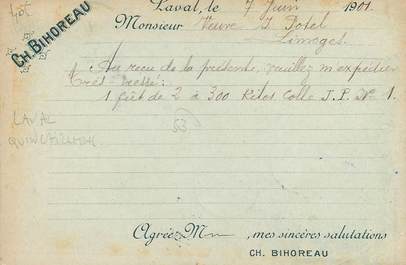 Laval, le 7 Juin 1901
CH. BIHOREAU
Monsieur Veuve J. Potel
Limoges.
Au reçu de la présente, veuillez m'expédier
très pressé:
1 fût de 2 à 300 Kilos Colle J. P. No 1.
53
LAVAL
Agréez M , mes sincères salutations
CH. BIHOREAU